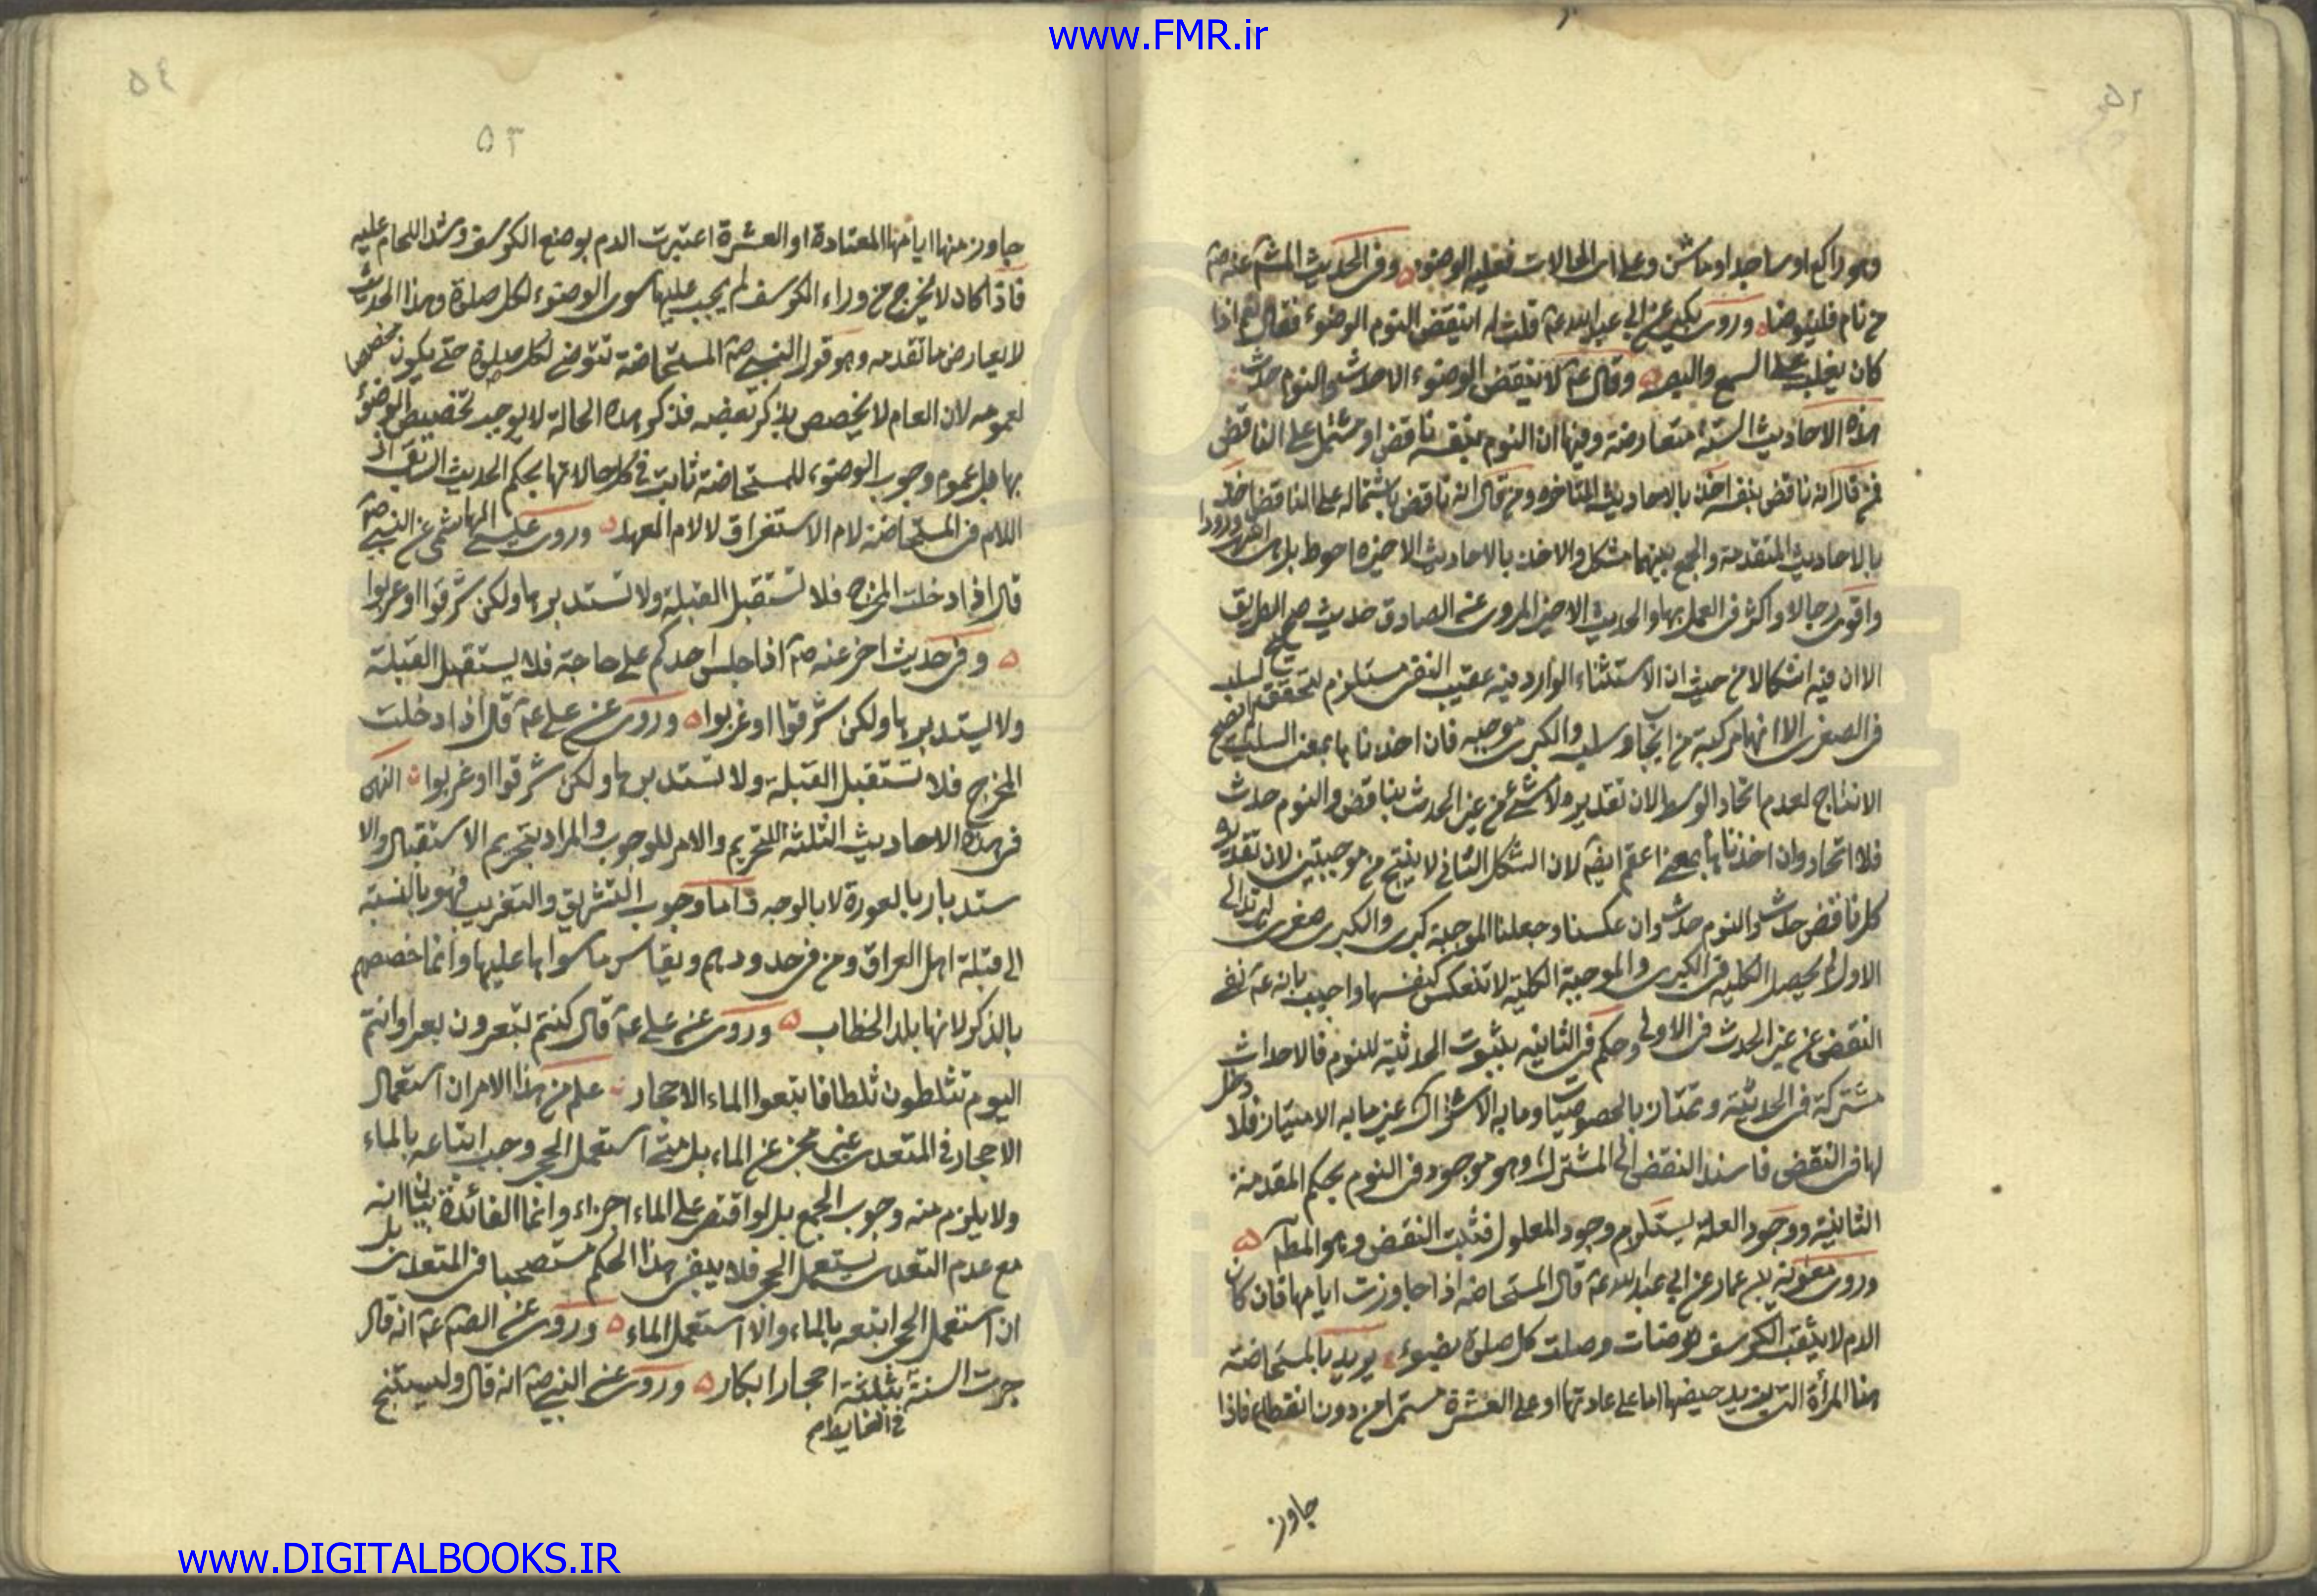 www.FMR.ir
٥٢
وهو راكع او ساجد او ماش وعلى اى الحالات فعليه الوضوء وفى الحديث
من نام فليتوضا وروى بكير عن ابى عبد الله ع قلت له اينقض النوم الوضوء فقال نعم اذا
كان يغلب على السمع والبصر وقال ع لا ينقض الوضوء الا حدث والنوم حدث
هذه الاحاديث الستة متعارضة وفيها ان النوم بنفسه ناقض او مشتمل على الناقض
فمن قال انه ناقض بنفسه اخذ بالاحاديث المتاخرة ومن قال انه ناقض باشتماله على الناقض اخذ
بالاحاديث المتقدمة والجمع بينهما مشكل والاخذ بالاحاديث الاخيرة احوط
واقوى رجالا واكثر فى العمل بها والحديث الاخير المروى عن الصادق حديث صحيح الطريق
الا ان فيه اشكالا من حيث ان الاستثناء الوارد فيه عقيب النفى مستلزم لتحقق السلب
فى الصغرى الا انها مركبة من ايجاب وسلب والكبرى موجبه فان اخذناها بمعنى السلب
الانتاج لعدم اتحاد الوسط لان تقديره ولا شئ من غير الحدث بناقض والنوم حدث
فلا اتحاد وان اخذناها لان الشكل الثانى لا ينتج من موجبتين لان تقديره
كل ناقض حدث والنوم حدث وان عكسنا وجعلنا الموجبة كبرى والكبرى صغرى ليرتد الى
الاول لم يحصل الكلية فى الكبرى والموجبة الكلية لا تنعكس كنفسها واجيب بانه ع نفى
النقض عن غير الحدث فى الاولى وحكم فى الثانيه بثبوت الحدثية للنوم فالاحداث
مشتركة فى الحدثية وتمتاز بالخصوصيات وما به الاشتراك غير ما به الامتياز فلا دخل
لها فى النقض فاسند النقض الى المشترك وهو موجود فى النوم بحكم المقدمة
الثانية ووجود العلة يستلزم وجود المعلول فثبت النقض وهو المط
وروى معوية بن عمار عن ابى عبد الله ع قال المستحاضه اذا جاوزت ايامها فان كان
الدم لا يثقب الكرسف توضات وصلت كل صلوة بوضوء يريد بالمستحاضة
هنا المرأة التى يزيد حيضها اما على عادتها او على العشرة مستمرا من دون انقطاع فاذا
جاوز
٥٤
٥٣
جاوز منها ايامها المعتادة او العشرة اعتبرت الدم بوضع الكرسف وشد اللجام عليه
فاذا كان لا يخرج من وراء الكرسف لم يجب عليها سوى الوضوء لكل صلوة وهذا الحديث
لا يعارض ما تقدمه وهو قول النبى ص المستحاضة تتوضى لكل صلوة حتى يكون مخصصا
لعمومه لان العام لا يخصص بذكر بعضه فذكر هذه الحالة لا يوجب تخصيص الوضوء
بها بل عموم وجوب الوضوء للمستحاضة ثابت فى كل حالاتها بحكم الحديث السابق اذ
اللام فى المستحاضة لام الاستغراق لا لام العهد وروى عيسى الهاشمى عن النبى ص
قال اذا دخلت المخرج فلا تستقبل القبلة ولا تستدبرها ولكن شرقوا او غربوا
وفى حديث اخر عنه ص اذا جلس احدكم على حاجة فلا يستقبل القبلة
ولا يستدبرها ولكن شرقوا او غربوا وروى عن على ع قال اذا دخلت
المخرج فلا تستقبل القبلة ولا تستدبرها ولكن شرقوا او غربوا النهى
فى هذه الاحاديث الثلثة للتحريم والامر للوجوب والمراد بتحريم الاستقبال والا
ستدبار بالعورة لا بالوجه فاما وجوب التشريق والتغريب فهو بالنسبة
الى قبلة اهل العراق ومن فى حدودهم ويقاس ما سواها عليها وانما خصصهم
بالذكر لانها بلد الخطاب وروى عن على ع قال كنتم تبعرون بعرا وانتم
اليوم تثلطون ثلطا فاتبعوا الماء الاحجار علم من هذا الامر ان استعمال
الاحجار فى المتعدى غير مجز عن الماء بل متى استعمل الحجر وجب اتباعه بالماء
ولا يلزم منه وجوب الجمع بل لو اقتصر على الماء اجزاء وانما الفائدة بيان انه
مع عدم التعدى يستعمل الحجر فلا يبقى هذا الحكم مستصحبا فى المتعدى بل
ان استعمل الحجر اتبعه بالماء والا استعمل الماء وروى عن الص ع انه قال
جرت السنة بثلثة احجار ابكار وروى عن النبى ص انه قال وليستنج
www.DIGITALBOOKS.IR